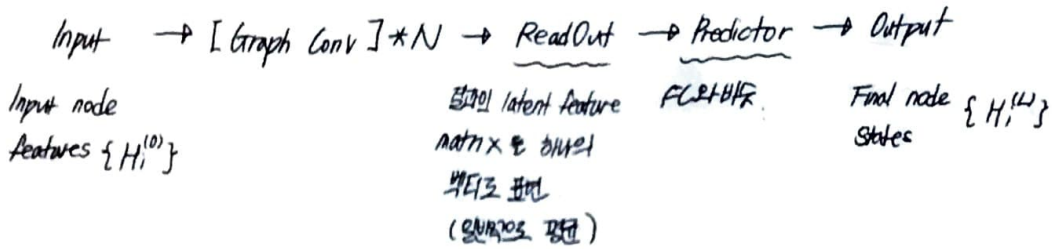 Input → [Graph Conv]*N → ReadOut → Predictor → Output
Input node
features {H_i^(0)}
latent feature
matrix를 하나의
벡터로 표현
(일반적으로 평균)
FC와 비슷
Final node
states {H_i^(L)}